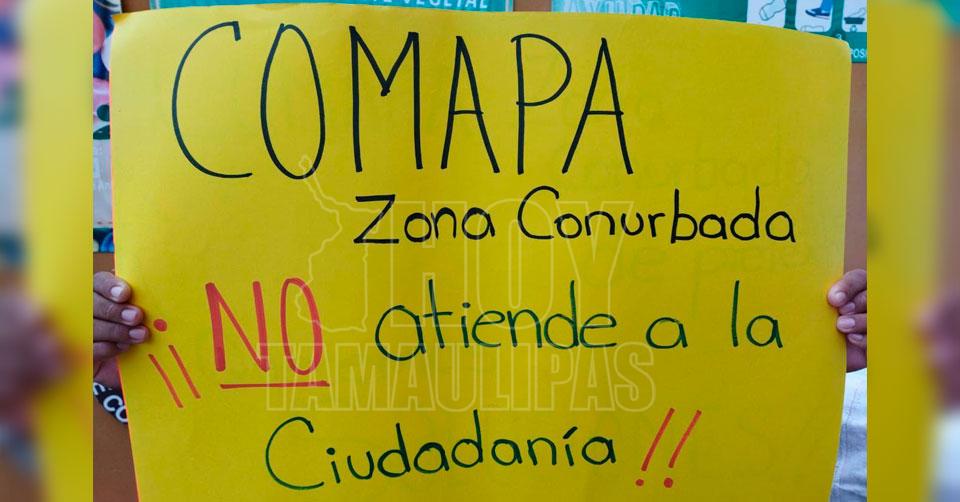 VEGETAL
COMAPA
Zona Conurbada
¡¡NO atiende a la
Ciudadanía!!
HOY
TAMAULIPAS